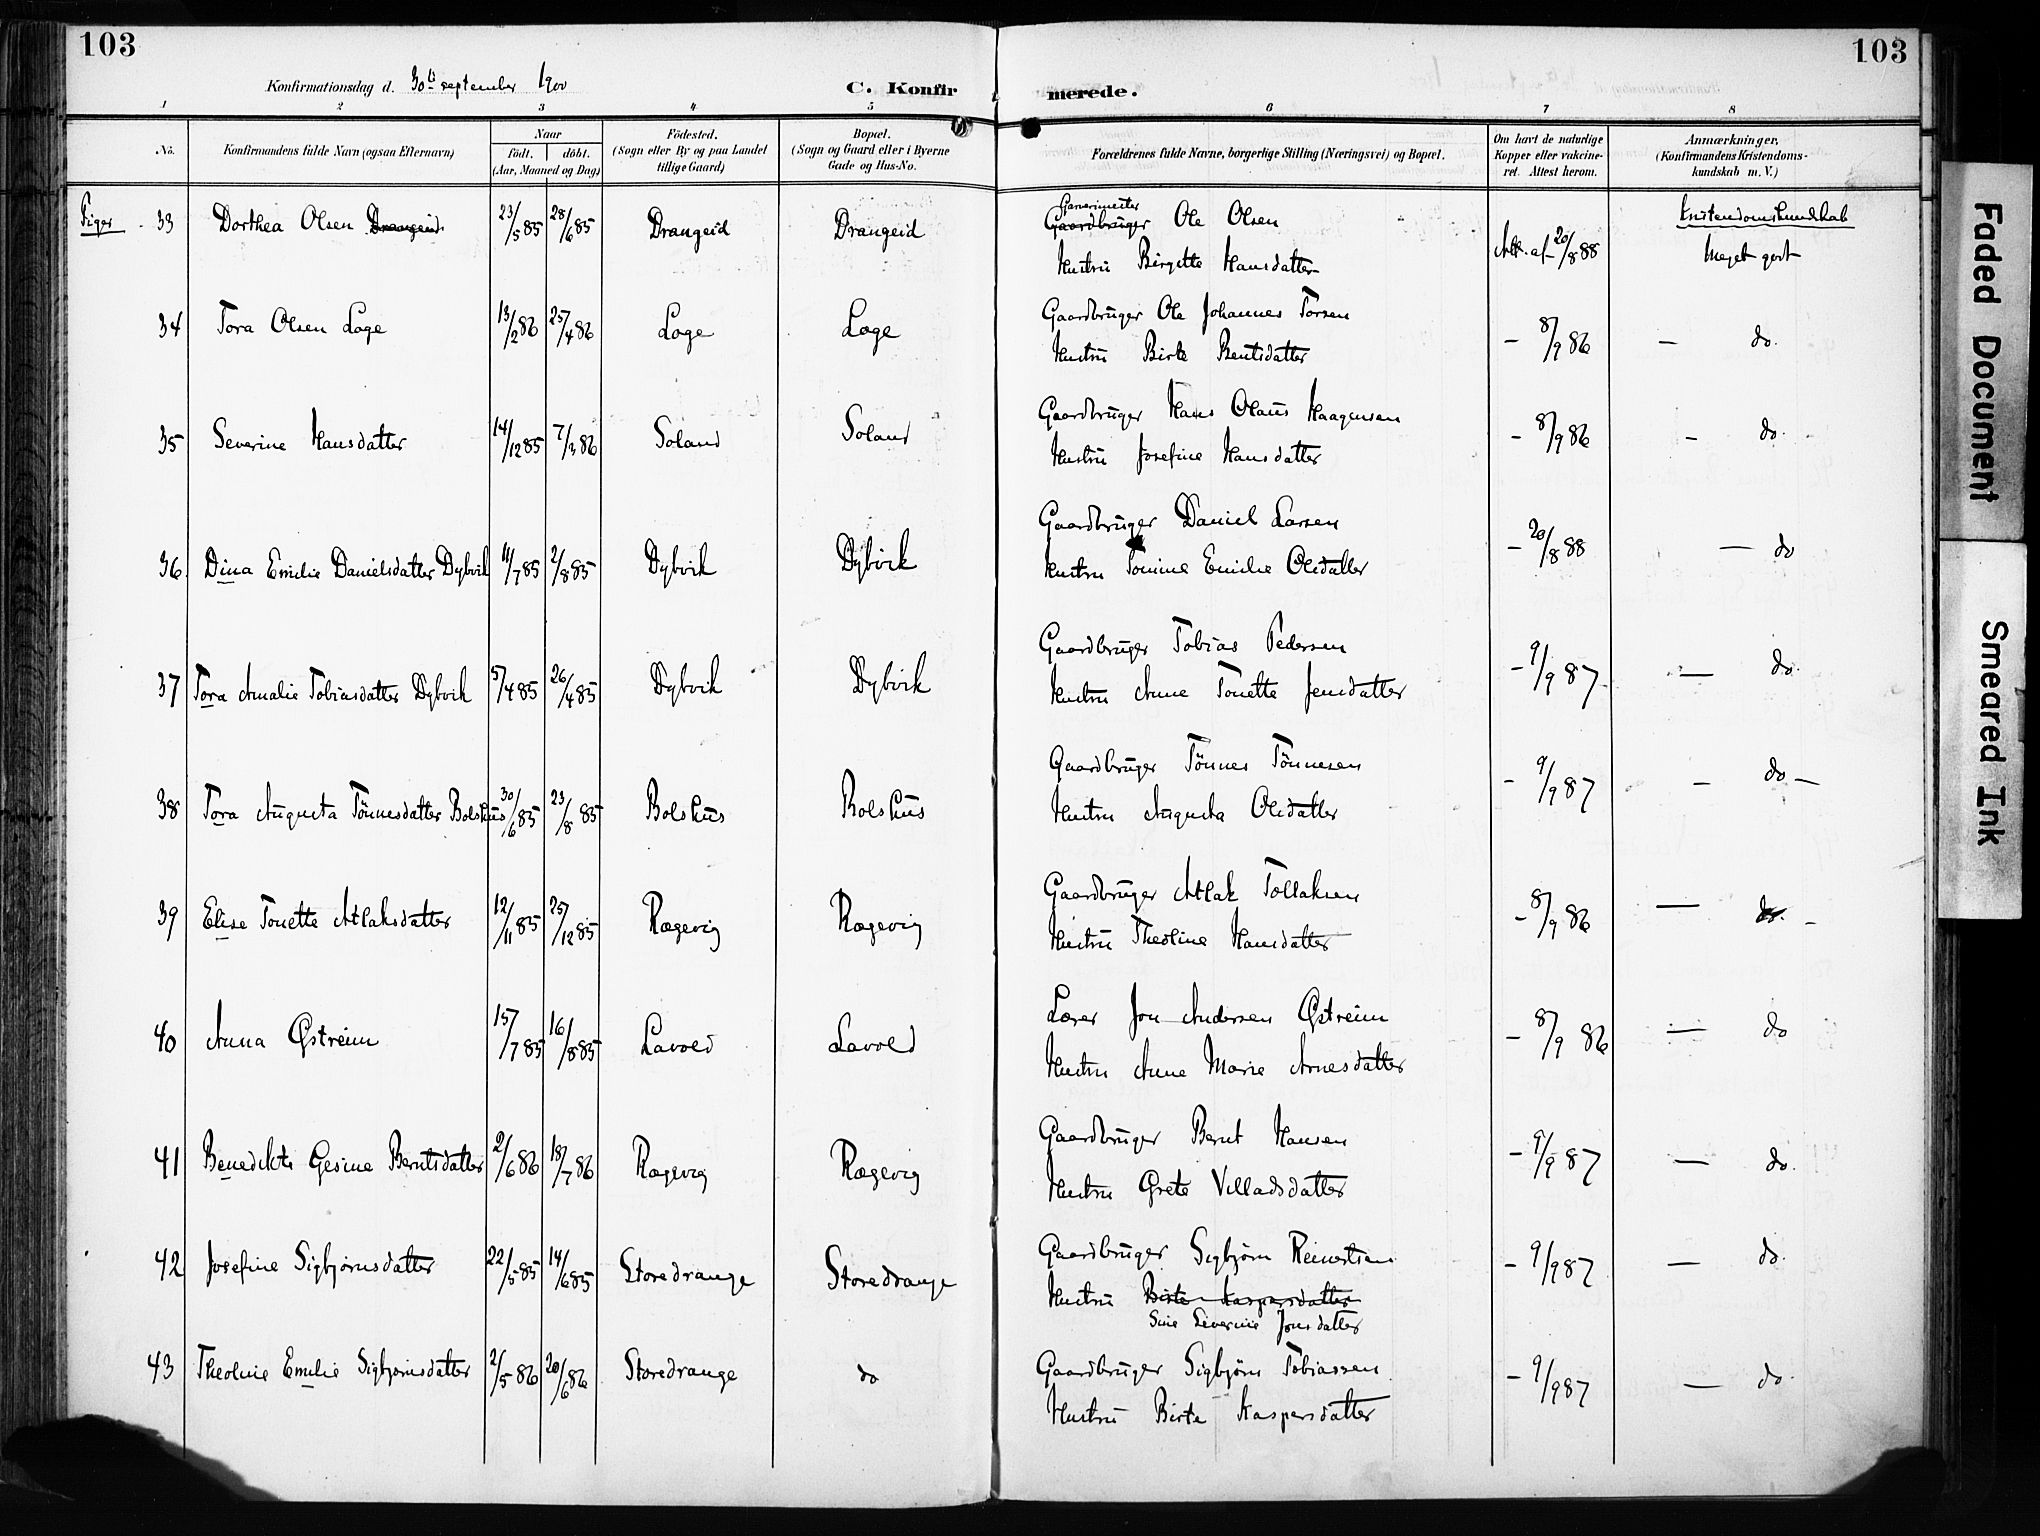 103
103
Konfirmationsdag d. 30te september 1900
C. Konfir merede.
1 2 3 4 5 6 7 8
No. Konfirmandens fulde Navn (ogsaa Efternavn) Naar födt. döbt. (Aar, Maaned og Dag) Födested. (Sogn eller By og paa Landet tillige Gaard) Bopæl. (Sogn og Gaard eller i Byerne Gade og Hus-No. Forældrenes fulde Navne, borgerlige Stilling (Næringsvei) og Bopæl. Om havt de naturlige Kopper eller vakcineret. Attest herom. Anmærkninger. (Konfirmandens Kristendomskundskab m. V.)
Piger 33 Dorthea Olsen Drangeid 23/5 85 28/6 85 Drangeid Drangeid Gaardbruger Ole Olsen Att. af 20/8 88 Kristendomskundskab
Hustru Birgitte Hansdatter Meget godt
34 Tora Olsen Loge 13/2 86 25/4 86 Loge Loge Gaardbruger Ole Johannes Torsen - 8/9 86 - do.
Hustru Birte Bentsdatter
35 Severine Hansdatter 14/12 85 7/3 86 Soland Soland Gaardbruger Hans Olaus Haagensen - 8/9 86 - do.
Hustru Josefine Hansdatter
36 Dina Emilie Danielsdatter Dybvik 11/7 85 2/8 85 Dybvik Dybvik Gaardbruger Daniel Larsen - 20/8 88 - do
Hustru Tomine Emilie Olsdatter
37 Tora Amalie Tobiasdatter Dybvik 5/4 85 26/4 85 Dybvik Dybvik Gaardbruger Tobias Pedersen - 9/9 87 - do.
Hustru Anne Tonette Jensdatter
38 Tora Augusta Tönnesdatter Bolshus 30/6 85 23/8 85 Bolshus Bolshus Gaardbruger Tönnes Tönnesen - 9/9 87 - do -
Hustru Augusta Olsdatter
39 Elise Tonette Atlaksdatter 12/11 85 25/12 85 Rægevig Rægevig Gaardbruger Atlak Tollaksen - 8/9 86 - do. -
Hustru Theoline Hansdatter
40 Anna Østreim 15/7 85 16/8 85 Lavold Lavold Lærer Jon Andersen Østreim - 8/9 86 - do
Hustru Anne Marie Arnesdatter
41 Benedikte Gesine Berntsdatter 2/6 86 18/7 86 Rægevig Rægevig Gaardbruger Bernt Hansen - 9/9 87 - do.
Hustru Grete Villadsdatter
42 Josefine Sigbjørnsdatter 22/5 85 14/6 85 Storedrange Storedrange Gaardbruger Sigbjørn Reinertsen - 9/9 87 - do.
Hustru Birte Kaspersdatter
Sine Severine Jonsdatter
43 Theoline Emilie Sigbjørnsdatter 2/5 86 20/6 86 Storedrange do Gaardbruger Sigbjørn Tobiassen - 9/9 87 - do.
Hustru Birte Kaspersdatter
Faded Document
Smeared Ink